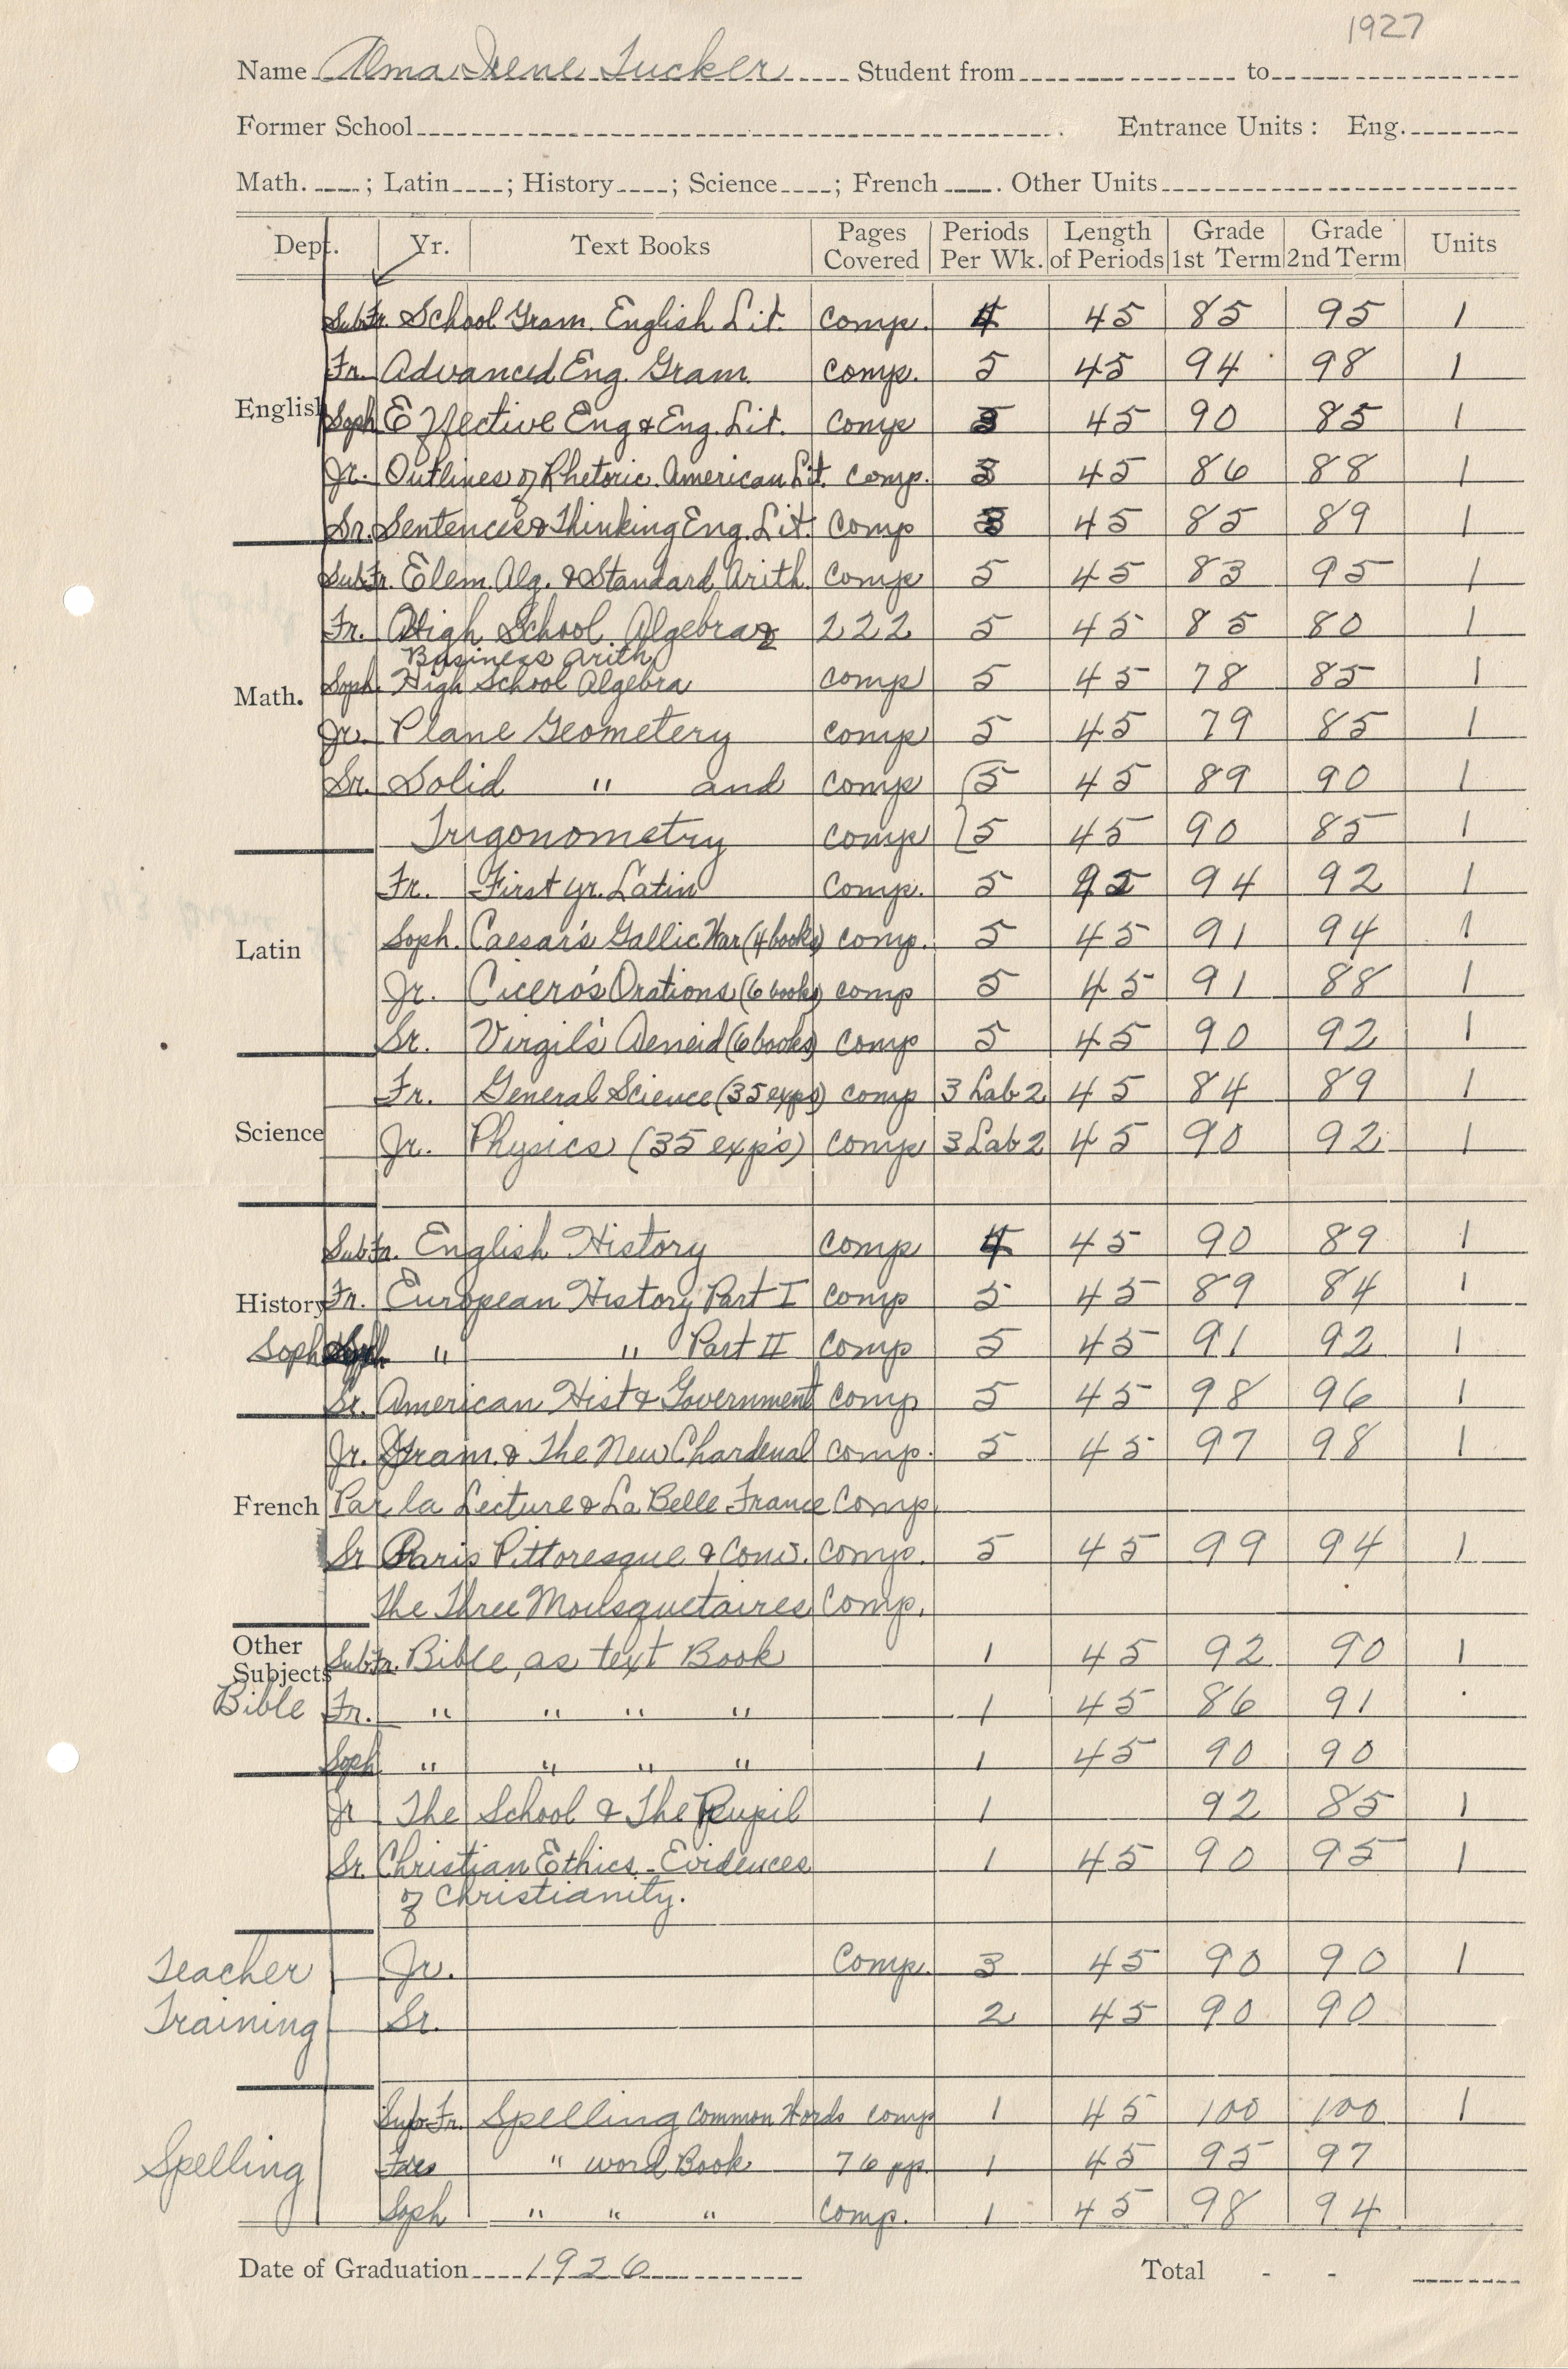 1927
Name Alma Irene Tucker Student from to
Former School Entrance Units: Eng.
Math. ; Latin ; History ; Science ; French . Other Units
Dept. Yr. Text Books Pages Covered Periods Per Wk. Length of Periods Grade 1st Term Grade 2nd Term Units
English
Sub Fr. School Gram. English Lit. Comp. 4 45 85 95 1
Fr. Advanced Eng. Gram. Comp. 5 45 94 98 1
Soph Effective Eng & Eng. Lit. Comp 45 90 85 1
Jr. Outlines of Rhetoric. American Lit. Comp. 3 45 86 88 1
Sr. Sentences & Thinking Eng. Lit. Comp 45 85 89 1
Math.
Sub Fr. Elem. Alg. & Standard Arith. Comp 5 45 83 95 1
Fr. High School Algebra & 222 5 45 85 80 1
Business Arith
Soph. High School Algebra Comp 5 45 78 85 1
Jr. Plane Geometery Comp 5 45 79 85 1
Sr. Solid " and Comp (5 45 89 90 1
Trigonometry Comp 5 45 90 85 1
Latin
Fr. First yr. Latin Comp. 5 45 94 92 1
Soph. Caesar's Gallic War (4 books) comp. 5 45 91 94 1
Jr. Cicero's Orations (6 books) comp 5 45 91 88 1
Sr. Virgil's Aeneid (6 books) comp 5 45 90 92 1
Science
Fr. General Science (35 exps) comp 3 Lab 2 45 84 89 1
Jr. Physics (35 exp's) comp 3 Lab 2 45 90 92 1
History
Sub Fr. English History Comp 4 45 90 89 1
Fr. European History Part I Comp 5 45 89 84 1
Soph " " Part II Comp 5 45 91 92 1
Sr. American Hist & Government Comp 5 45 98 96 1
French
Jr. Gram. & The New Chardenal comp. 5 45 97 98 1
Par la Lecture & La Belle France Comp.
Sr Paris Pittoresque & Conv. Comp. 5 45 99 94 1
The Three Mousquetaires Comp.
Other Subjects
Sub Fr. Bible, as text Book 1 45 92 90 1
Bible Fr. " " " " 1 45 86 91
Soph " " " " 1 45 90 90
Jr The School & The Pupil 1 92 85 1
Sr. Christian Ethics - Evidences 1 45 90 95 1
of Christianity.
Teacher Jr. Comp. 3 45 90 90 1
Training Sr. 2 45 90 90
Sub Fr. Spelling Common Words comp 1 45 100 100 1
Spelling " word Book 76 pp. 1 45 95 97
Soph " " " Comp. 1 45 98 94
Date of Graduation 1926 Total - -